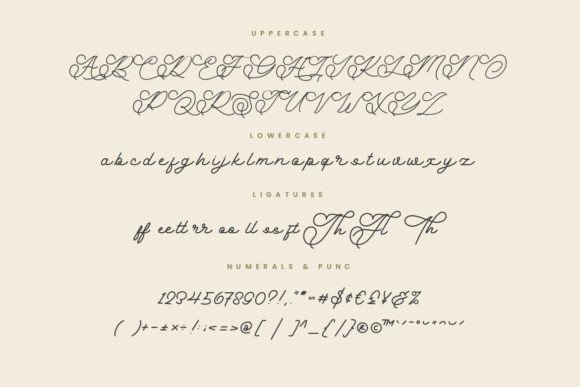 UPPERCASE
ABCDEFGHIJKLMNO
PQRSTUVWXYZ
LOWERCASE
abcdefghijklmnopqrstuvwxyz
LIGATURES
ff ee tt rr oo ll ss ft Th Fl Th
NUMERALS & PUNC
1234567890?!,."*~#$¢€£¥&%
( )+-±×÷!:;<=>@[ / ]^_{|}®©™